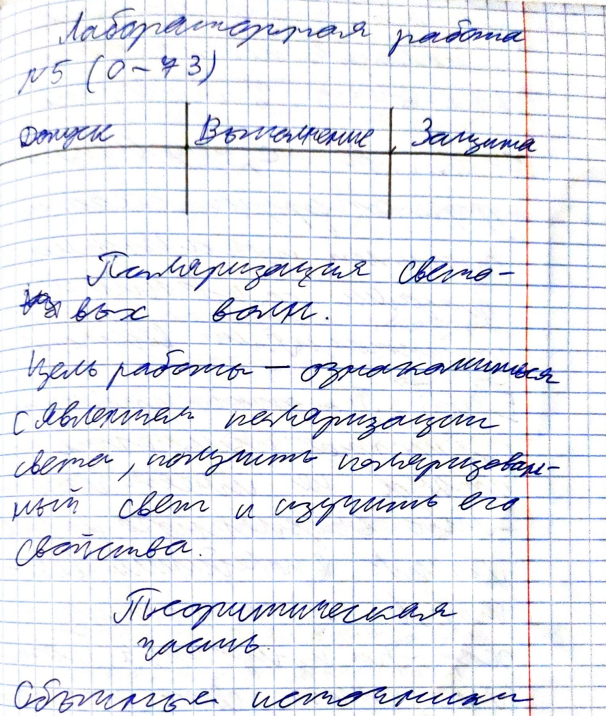 Лабораторная работа
№5 (0-73)
Допуск Выполнение Защита
Поляризация свето-
вых волн.
Цель работы – ознакомиться
с явлением поляризации
света, получить поляризован-
ный свет и изучить его
свойства.
Теоритическая
часть.
Обычные источники